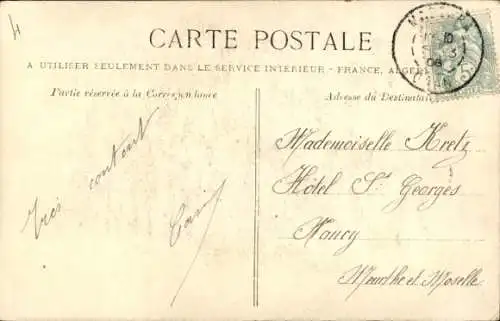 4
CARTE POSTALE
A UTILISER SEULEMENT DANS LE SERVICE INTÉRIEUR - FRANCE, ALGER
Partie réservée à la Correspondance
Adresse du Destinataire
Très content
Mademoiselle Kretz
Hôtel St Georges
Nancy
Meurthe et Moselle